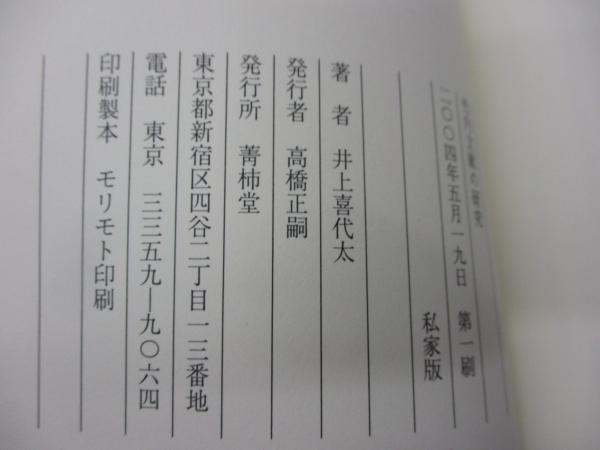 の研究
二〇〇四年五月一九日 第一刷
私家版
著者 井上喜代太
発行者 高橋正嗣
発行所 菁柿堂
東京都新宿区四谷二丁目一三番地
電話 東京 三三五九―九〇六四
印刷製本 モリモト印刷